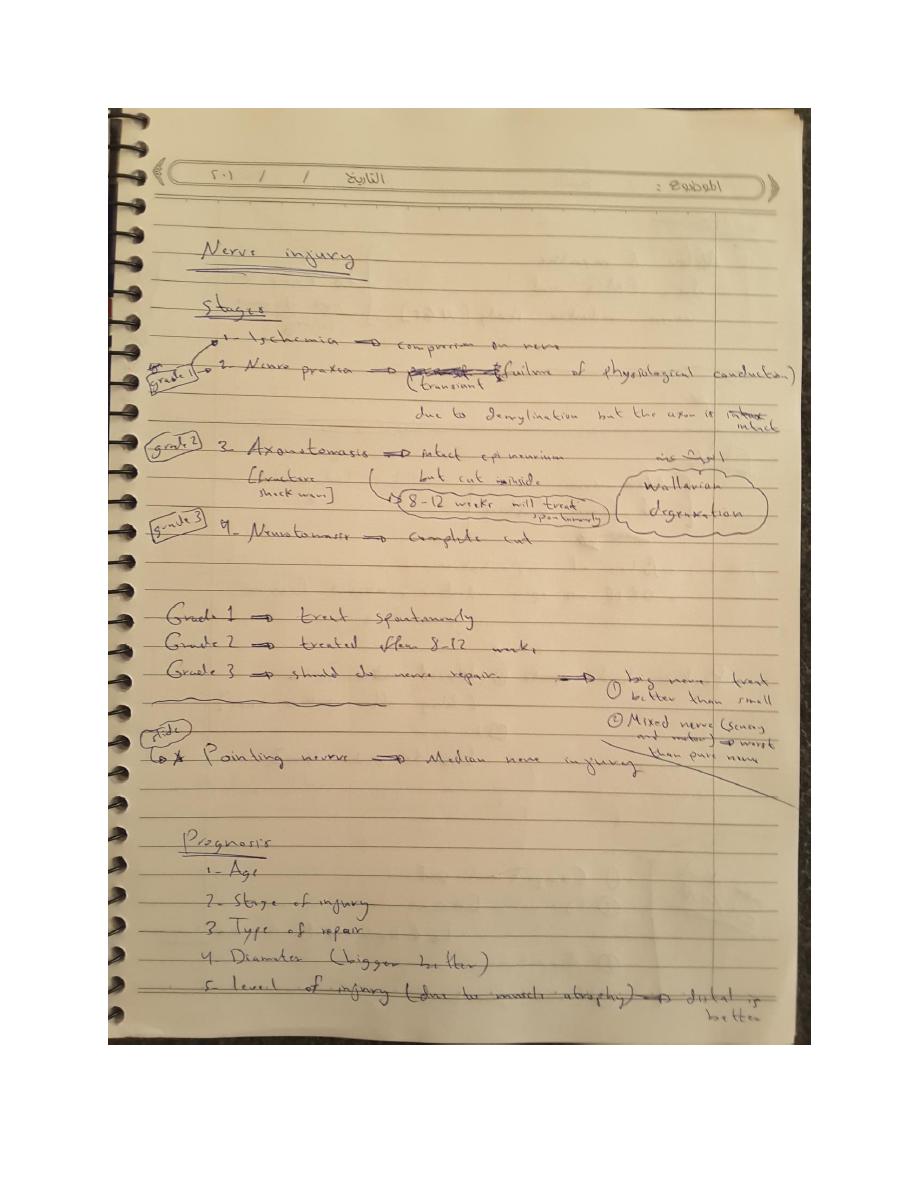 الموضوع : التاريخ / / ٢٠١
Nerve injury
Stages
1- Ischemia ⇒ compression on nerve
grade 1 2- Neuro praxia ⇒ (transiant failure of physiological conduction)
due to demylination but the axon is intact
grade 2 3- Axonotomasis ⇒ intact epineurium
[fracture but cut inside
shock wave] 8-12 weeks will treat spontanously
wallarian
degeneration
grade 3 4- Neurotomasis ⇒ complete cut
Grade 1 ⇒ treat spontanously
Grade 2 ⇒ treated after 8-12 weeks
Grade 3 ⇒ should do nerve repair ⇒ ① big nerve treat
better than small
② Mixed nerve (sensory
and motor) → worst
than pure nerve
slide
* Pointing nerve ⇒ Median nerve injury
Prognosis
1- Age
2- Stage of injury
3- Type of repair
4- Diameter (bigger better)
5- level of injury (due to muscle atrophy) → distal is
better